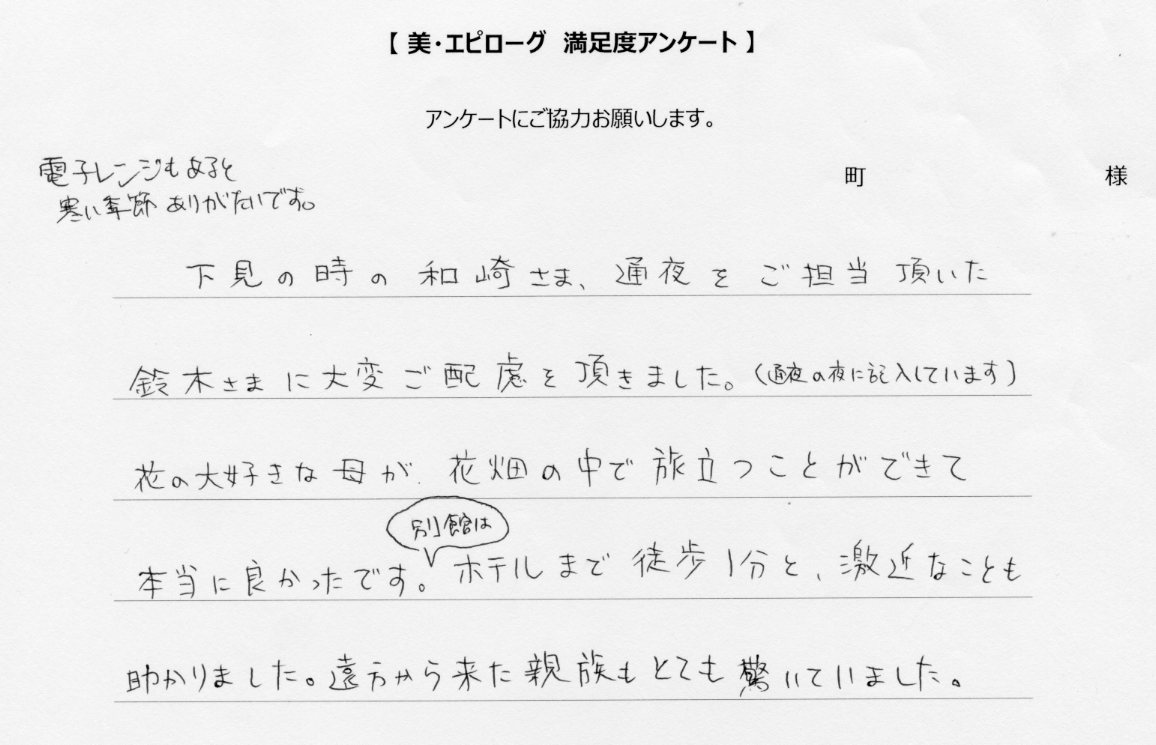 【 美・エピローグ 満足度アンケート 】
アンケートにご協力お願いします。
町 様
電子レンジもあると
寒い季節 ありがたいです。
下見の時の和崎さま、通夜をご担当頂いた
鈴木さまに大変ご配慮を頂きました。(通夜の夜に記入しています)
花の大好きな母が、花畑の中で旅立つことができて
別館は
本当に良かったです。ホテルまで徒歩1分と、激近なことも
助かりました。遠方から来た親族もとても驚いていました。